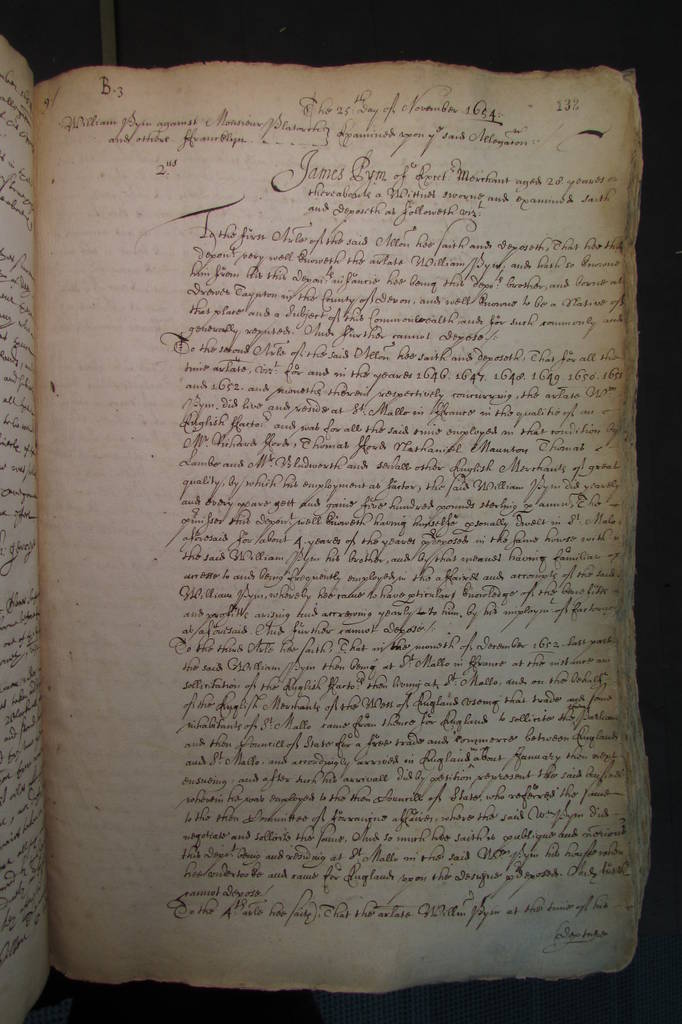 B.3
The 25th Day of November 1654:
132
William Pym against Monsieur
and others Francklyn
Examined upon ye said Allegation:
2us
James Pym of Exect: Merchant aged 28 yeares or
thereabouts a Witnes sworne and examined saith
and deposeth as followeth vizt:
To the first Arle of the said Allon hee saith and deposeth, That hee this
depont very well knoweth the arlate William Pym, and hath so knowne
him from his this deponts infancie hee being this depts brother, and borne at
Drewes Taynton in the County of Devon, and well knowne to be a Native of
that place and a subject of this Commonwealth and for such commonly and
generally reputed. And further cannot depose /:
To the second Arle of the said Allon hee saith and deposeth, That for all the
time arlate, vizt. for and in the yeares 1646. 1647. 1648. 1649 1650. 1651
and 1652. and moneths therein respectively concurring, the arlate Wm
Pym, did live and reside at St. Mallo in ffrance in the qualitie of an
English ffactor and was for all the said time employed in that condition by
Mr. Richard fford, Thomas fford Nathaniel Maunton Thomas
Lambe and Mr. Bludworth and severall other English Merchants of great
quality, by which his employment as factor, the said William Pym did yearely
and every yeare gett and gaine five hundred pounds sterling p annu, The
prmisses this depont well knoweth having himselfe psonally dwelt in St. Malo
aforesaid for about 4 yeares of the yeares predeposed in the same house with
the said William Pym his brother, and by that meanes having familiar
accesse to and being frequently employed in the affaires and accompts of the said
William Pym, whereby hee came to have pticulart knowledge of the benefitts
and profitts arising and accrewing yearly to him by his imploymt of factorage
as aforesaid. And further cannot depose /:
To the third Arle hee saith, That in the moneth of December 1652. last past
the said William Pym then being at St Mallo in ffrance at the instance and
sollicitation of the English ffactors then living at St Mallo, and on the behalfe
of the English Merchants of the West of England useing that trade and some
inhabitants of St. Mallo came from thence for England to sollicite the Parliamt
and then Councill of State for a free trade and Commerce betweene England
and St. Mallo, and accordingly arrived in England about January then next
ensueing, and after such his arrivall did by petition represent the said busines
wherein he was employed to the then Councill of State, who referred the same
to the then Committee of fforraigne affaires, where the said Wm Pym did
negotiate and sollicite the same, And so much hee saith is publique and notorious
this Dept being and residing at St Mallo in the said Wm Pym his house when
hee undertooke and came for England upon the designe predeposed. And further
cannot depose /
To the 4th arle hee saith, That the arlate Willm Pym at the time of his